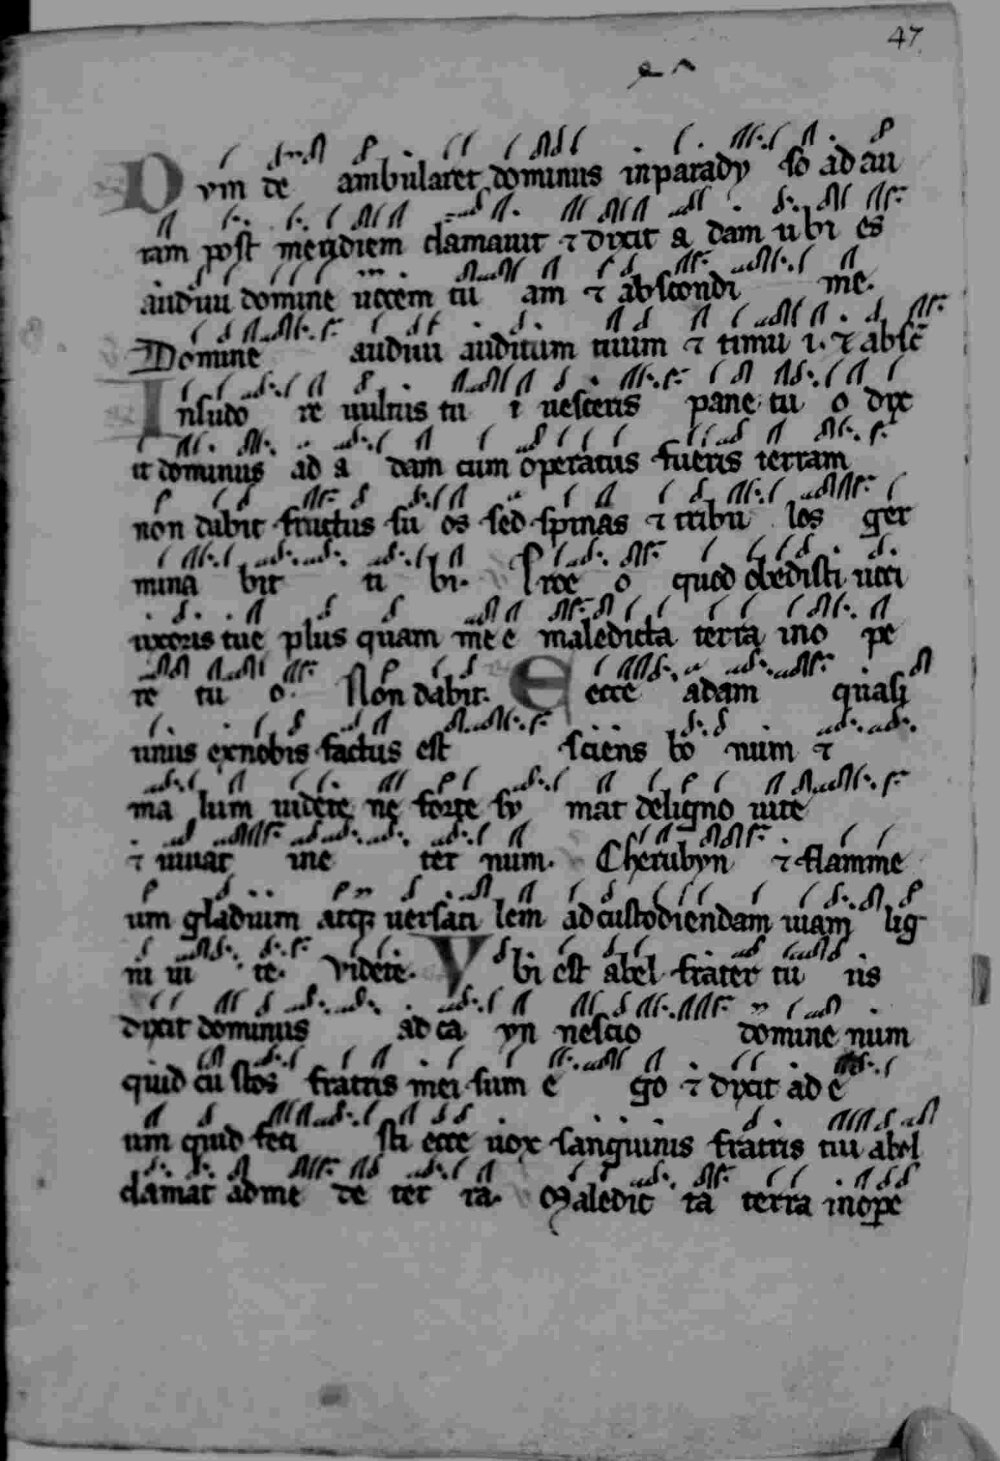 47
Dvm de ambularet dominus in parady so ad au
ram post meridiem clamauit ⁊ dixit a dam ubi es
audiui domine uocem tu am ⁊ abscondi me.
Domine audiui auditum tuum ⁊ timui. ⁊ absc̄
Insudo re uultus tu i uesceris pane tu o dix
it dominus ad a dam cum operatus fueris terram
non dabit fructus su os sed spinas ⁊ tribu los ger
mina bit ti bi. Pro e o quod obedisti uoci
uxoris tue plus quam me e maledicta terra in o pe
re tu o. Non dabit. Ecce adam quasi
unus ex nobis factus est sciens bo num ⁊
ma lum uidete ne forte sy mat de ligno uite
⁊ uiuat in e ter num. Cherubyn ⁊ flamme
um gladium atq; uersati lem ad custodiendam uiam lig
ni ui te. Videte. Vbi est abel frater tu us
dixit dominus ad ca yn nescio domine num
quid cu stos fratris mei sum e go ⁊ dixit ad e
um quid feci sti ecce uox sanguinis fratris tui abel
clamat ad me de ter ra. Maledic ta terra in ope